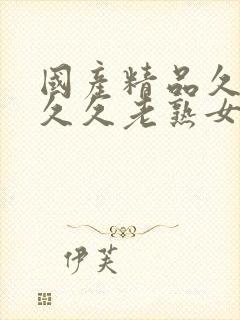 國產精品久
久久老熟女
伊芙